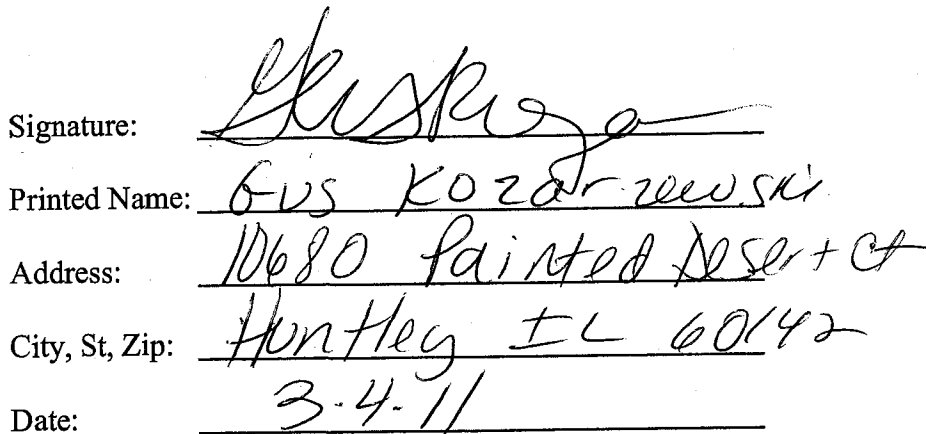 Signature:
Printed Name: Gus Kozarzewski
Address: 10680 Painted Desert Ct
City, St, Zip: Huntley IL 60142
Date: 3-4-11